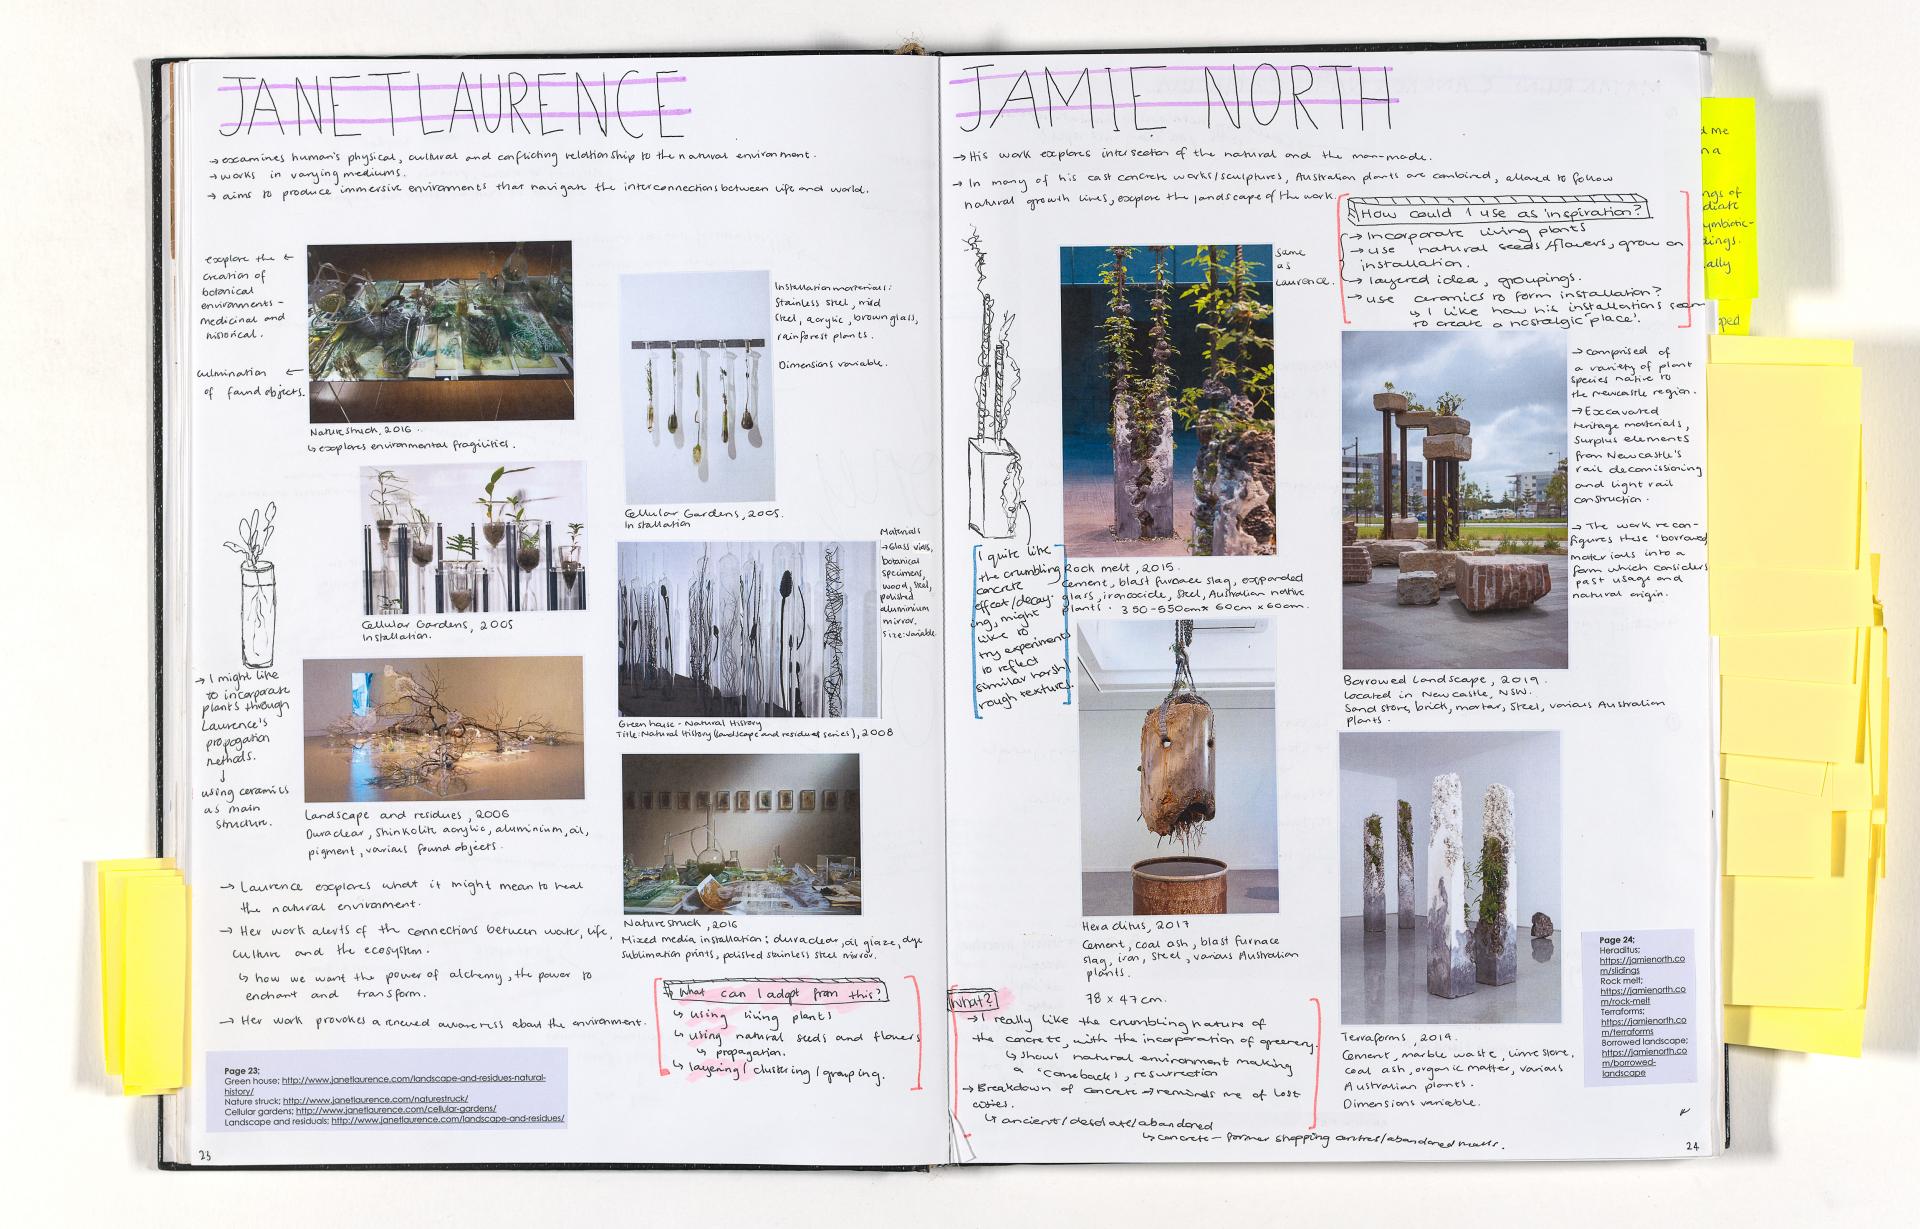 JANET LAURENCE
→ examines human's physical, cultural and conflicting relationship to the natural environment.
→ works in varying mediums.
→ aims to produce immersive environments that navigate the interconnections between life and world.
explore the ←
creation of
botanical
environments -
medicinal and
historical.
culmination ←
of found objects.
Nature struck, 2016.
↳ explores environmental fragilities.
Installation materials:
Stainless steel, mild
steel, acrylic, brown glass,
rainforest plants.
Dimensions variable.
Cellular Gardens, 2005.
Installation
Cellular Gardens, 2005
Installation.
Materials
→ Glass vials,
botanical
specimens,
wood, steel,
polished
aluminium
mirror.
Size: variable
Green house - Natural History
Title: Natural History (landscape and residues series), 2008
→ I might like
to incorporate
plants through
Laurence's
propogation
methods.
↓
using ceramics
as main
structure.
Landscape and residues, 2006
Duraclear, Shinkolite acrylic, aluminium, oil,
pigment, various found objects.
Nature struck, 2016
Mixed media installation: duraclear, oil glaze, dye
sublimation prints, polished stainless steel mirror.
→ Laurence explores what it might mean to heal
the natural environment.
→ Her work alerts of the connections between water, life,
culture and the ecosystem.
↳ how we want the power of alchemy, the power to
enchant and transform.
→ Her work provokes a renewed awareness about the environment.
What can I adopt from this?
↳ using living plants
↳ using natural seeds and flowers
↳ propagation.
↳ layering / clustering / grouping.
Page 23;
Green house; http://www.janetlaurence.com/landscape-and-residues-natural-
history/
Nature struck; http://www.janetlaurence.com/naturestruck/
Cellular gardens; http://www.janetlaurence.com/cellular-gardens/
Landscape and residuals; http://www.janetlaurence.com/landscape-and-residues/
23
JAMIE NORTH
→ His work explores intersection of the natural and the man-made.
→ In many of his cast concrete works/sculptures, Australian plants are combined, allowed to follow
natural growth lines, explore the landscape of the work.
How could I use as inspiration?
→ Incorporate living plants
→ use natural seeds/flowers, grow on
installation.
→ layered idea, groupings.
→ use ceramics to form installation?
↳ I like how his installations seem
to create a nostalgic 'place'.
same
as
Laurence.
I quite like
the crumbling
concrete
effect/decay-
ing, might
like to
try experiments
to reflect
similar harsh/
rough textures.
Rock melt, 2015.
Cement, blast furnace slag, expanded
glass, iron oxide, steel, Australian native
plants. 350-550cm x 60cm x 60cm.
→ Comprised of
a variety of plant
species native to
the newcastle region.
→ Excavated
heritage materials,
surplus elements
from Newcastle's
rail decomissioning
and light rail
construction.
→ The work recon-
figures these 'borrowed
materials into a
form which considers
past usage and
natural origin.
Borrowed Landscape, 2019.
Located in Newcastle, NSW.
Sandstone, brick, mortar, steel, various Australian
plants.
Heraditus, 2017
Cement, coal ash, blast furnace
slag, iron, steel, various Australian
plants.
78 x 47cm.
Terraforms, 2014.
Cement, marble waste, limestone,
coal ash, organic matter, various
Australian plants.
Dimensions variable.
What?
→ I really like the crumbling nature of
the concrete, with the incorporation of greenery.
↳ shows natural environment making
a 'comeback', resurrection
→ Breakdown of concrete → reminds me of lost
cities.
↳ ancient/desolate/abandoned
↳ concrete - former shopping centres/abandoned malls.
Page 24;
Heraditus;
https://jamienorth.co
m/slidings
Rock melt;
https://jamienorth.co
m/rock-melt
Terraforms;
https://jamienorth.co
m/terraforms
Borrowed landscape;
https://jamienorth.co
m/borrowed-
landscape
24